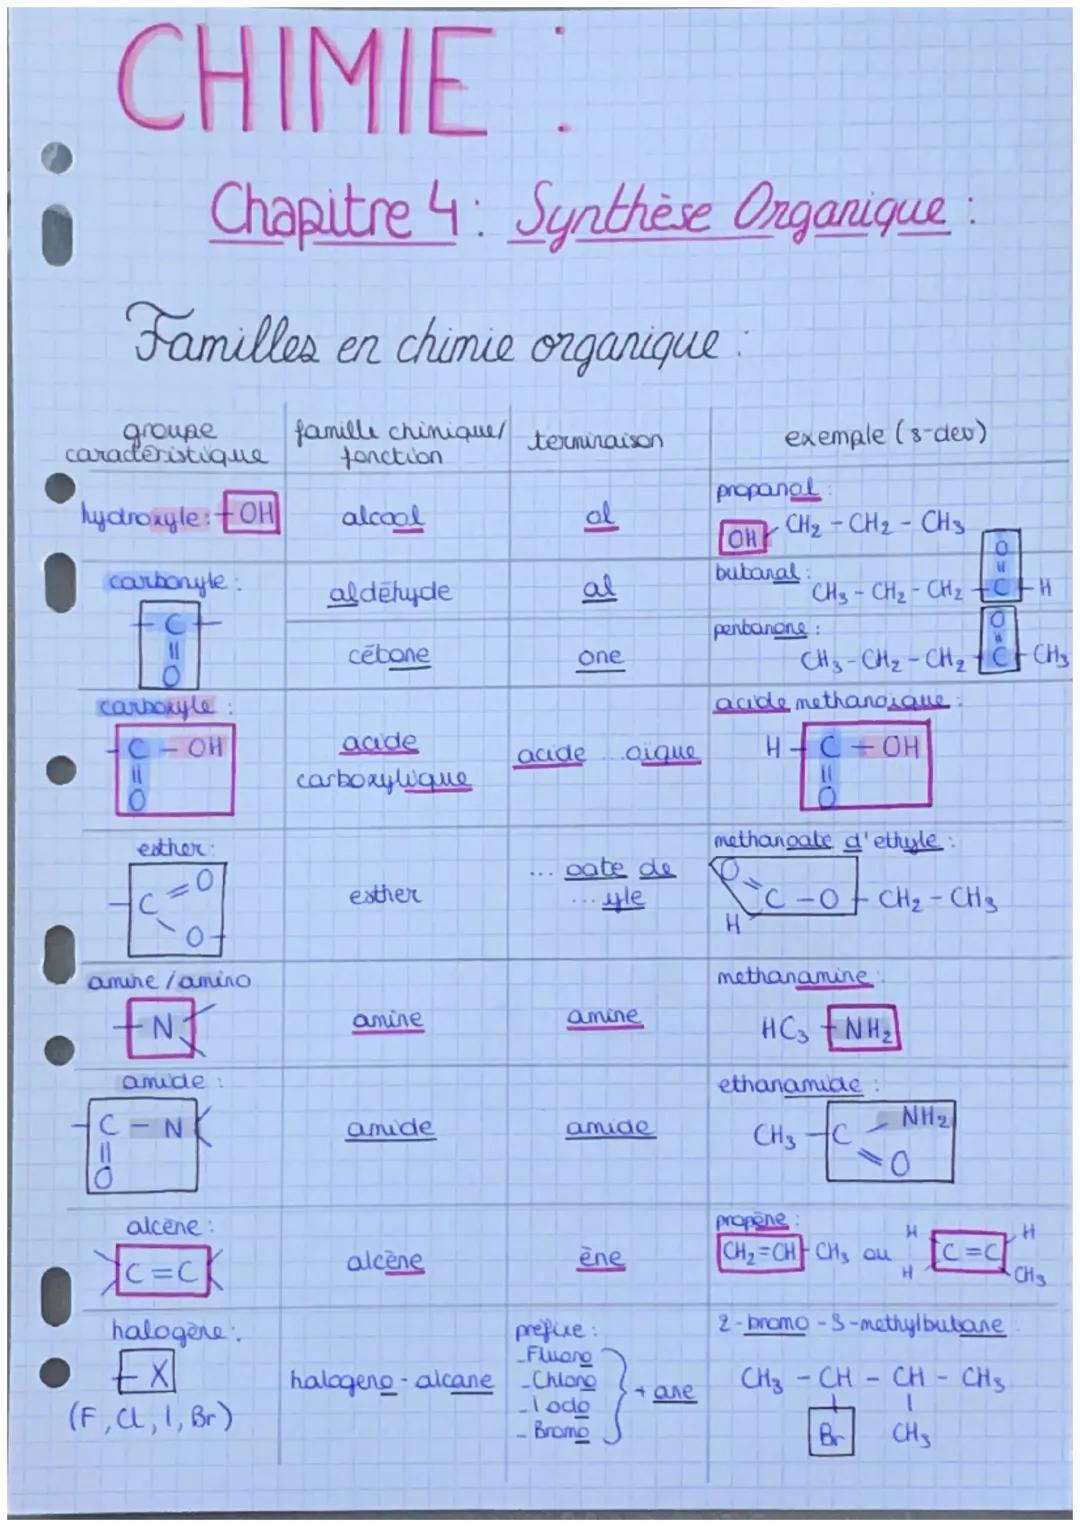 CHIMIE :
Chapitre 4 : Synthèse Organique :
Familles en chimie organique :
groupe caractéristique | famille chimique/ fonction | terminaison | exemple (s-dev)
hydroxyle : - OH | alcool | ol | propanol :
OH - CH2 - CH2 - CH3
carbonyle : | aldéhyde | al | butanal :
- C - || O | CH3 - CH2 - CH2 - C - H || O
cétone | one | pentanone :
CH3 - CH2 - CH2 - C - CH3 || O
carboxyle : | acide carboxylique | acide ... oique | acide methanoique :
- C - OH || O | H - C - OH || O
esther : | esther | ... oate de ... yle | methanoate d'ethyle :
- C = O - O - | O = C - O - CH2 - CH3 H
amine / amino | amine | amine | methanamine :
- N | HC3 - NH2
amide : | amide | amide | ethanamide :
- C - N || O | CH3 - C - NH2 = O
alcène : | alcène | ène | propène :
C = C | CH2 = CH - CH3 ou H H C = C H CH3
halogène : | halogeno - alcane | prefixe : | 2-bromo-3-methylbutane
- X | - Fluoro
(F, Cl, I, Br) | - Chloro
- Iodo
- Bromo
+ ane
CH3 - CH - CH - CH3
Br CH3